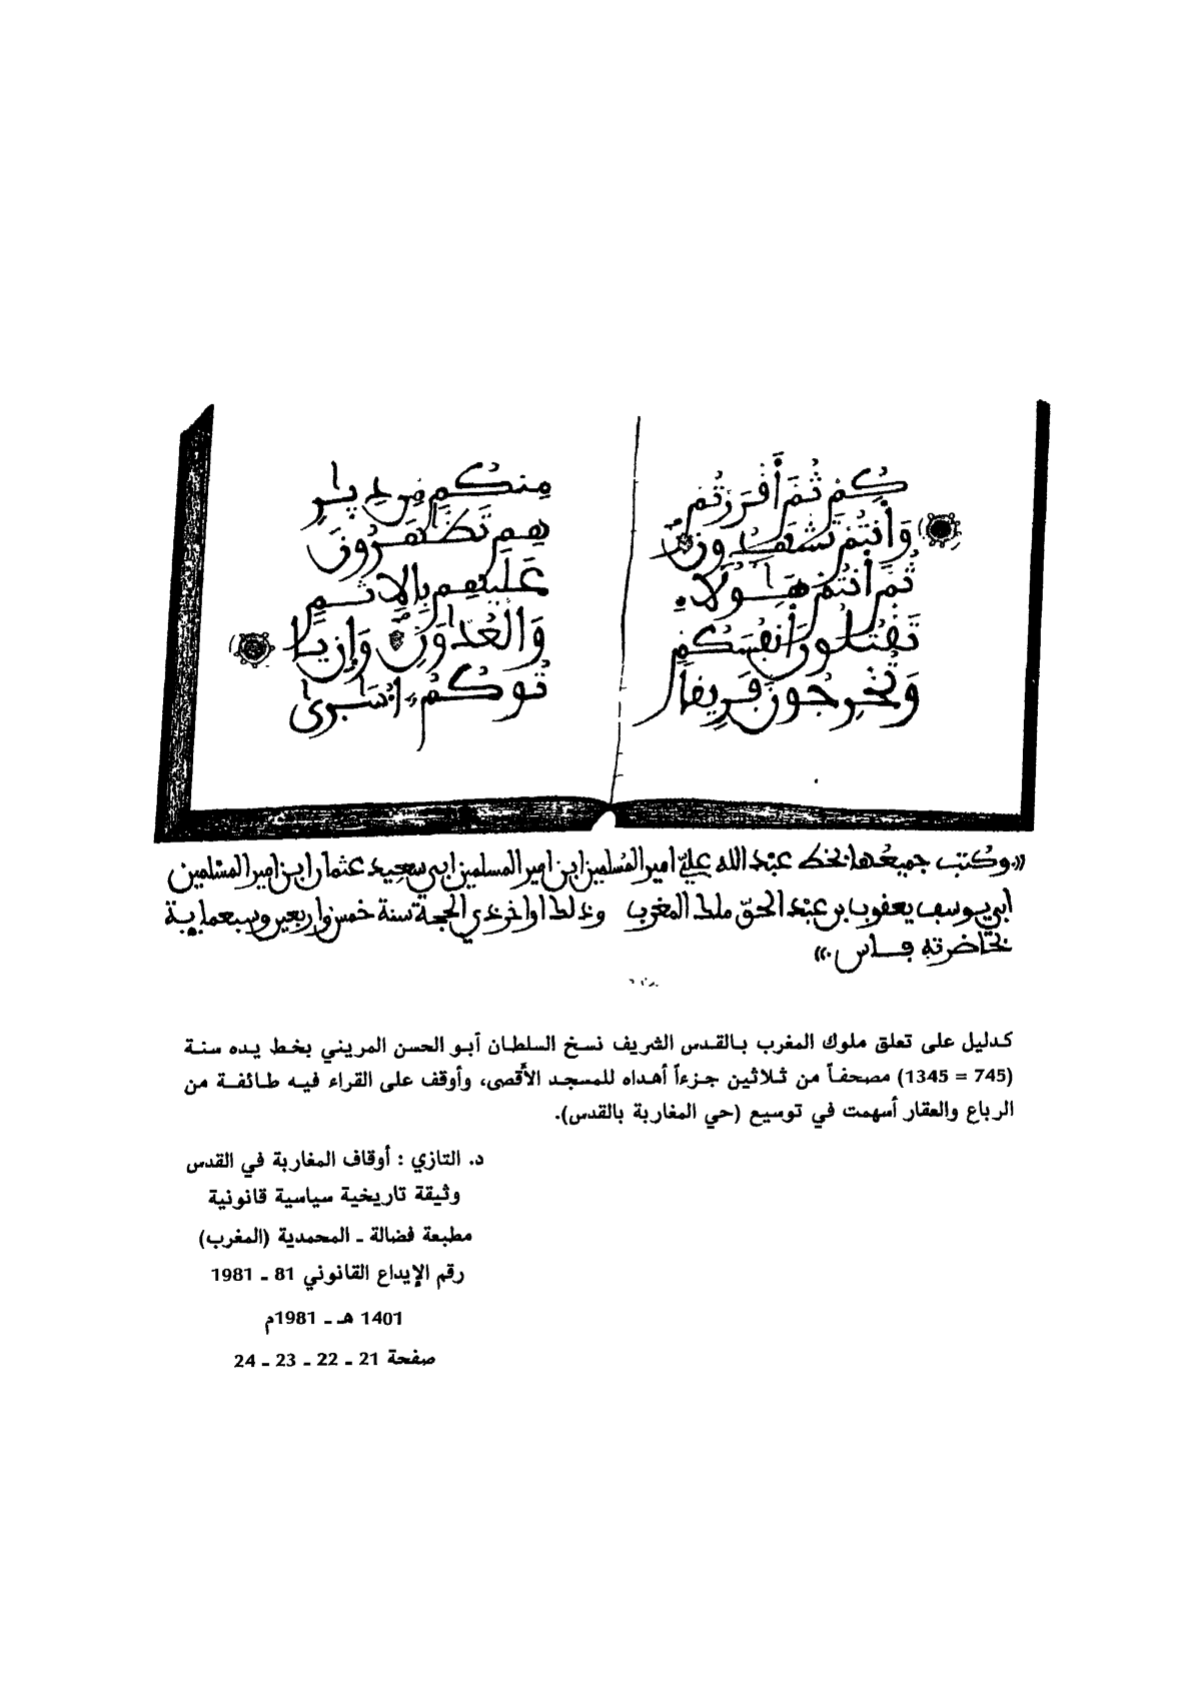 كُمْ ثُمَّ أَقْرَرْتُمْ
وَأَنتُمْ تَشْهَدُونَ
ثُمَّ أَنتُمْ هَٰؤُلَاءِ
تَقْتُلُونَ أَنفُسَكُمْ
وَتُخْرِجُونَ فَرِيقاً
مِنكُم مِّن دِيَٰرِ
هِمْ تَظَّٰهَرُونَ
عَلَيْهِم بِالِاثْمِ
وَالْعُدْوَٰنِ وَإِنْ يَا
تُوكُمُ أُسَٰرَىٰ
«وكُتِب جميعُها بخط عبد الله علي امير المُسلمين ابن امير المسلمين ابي سعيد عثمان ابن امير المسْلمين
ابي يوسف يعقوب بن عبد الحقّ ملك المغرب وذلك اواخر ذي الحجة سنة خمس واربعين وسبعماية
بحاضرته فاس.»
كدليل على تعلق ملوك المغرب بالقدس الشريف نسخ السلطان أبو الحسن المريني بخط يده سنة
(745 = 1345) مصحفاً من ثلاثين جزءاً أهداه للمسجد الأقصى، وأوقف على القراء فيه طائفة من
الرباع والعقار أسهمت في توسيع (حي المغاربة بالقدس).
د. التازي : أوقاف المغاربة في القدس
وثيقة تاريخية سياسية قانونية
مطبعة فضالة ـ المحمدية (المغرب)
رقم الإيداع القانوني 81 ـ 1981
1401 هـ ـ 1981م
صفحة 21 ـ 22 ـ 23 ـ 24